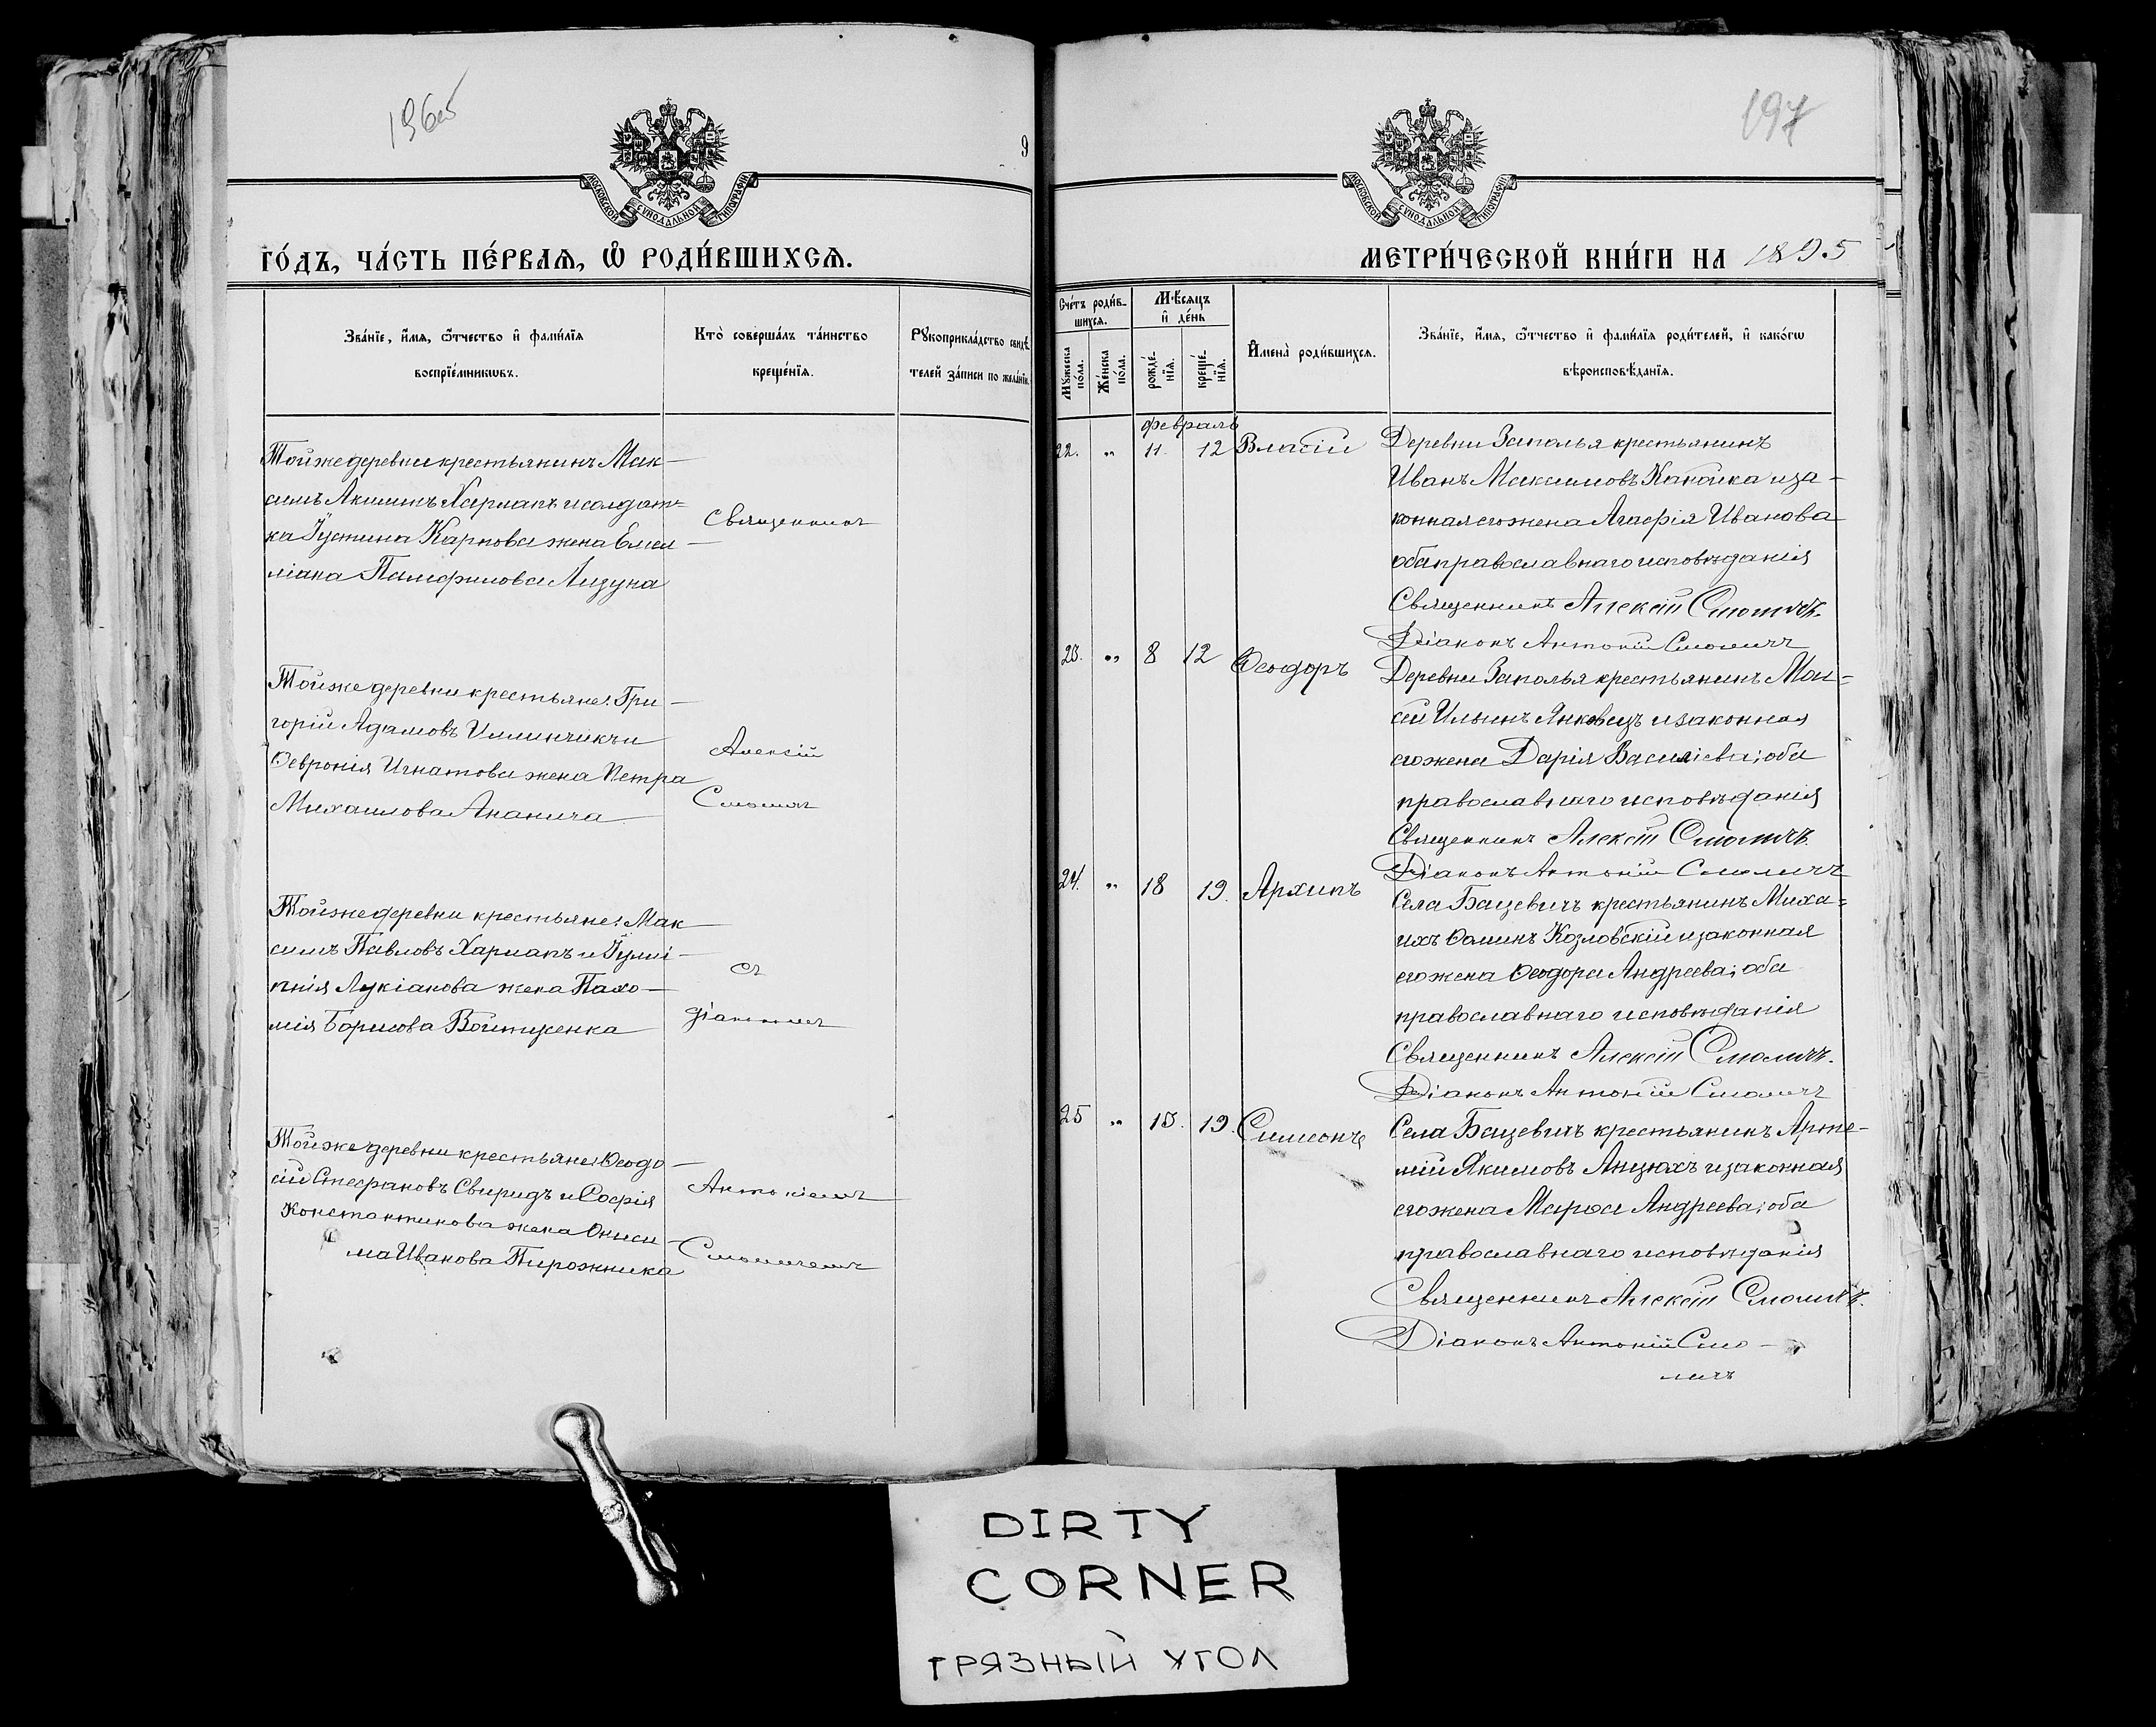 196об
9
МОСКОВСКОЙ СѴНОДАЛЬНОЙ ТИПОГРАФІИ
ГО́ДЪ, ЧА́СТЬ ПЕ́РВАѦ, Ѽ РОДИ́ВШИХСѦ.
Зва́нїе, и҆́мѧ, ѻ҆́тчество и҆ фами́лїѧ
воспрїе́мникѡвъ.
Кто̀ соверша́лъ та́инство
креще́нїѧ.
Рꙋкоприкла́дство свидѣ́-
телей за́писи по жела́нїю.
Тойже деревни крестьянинъ Мак-
симъ Акиминъ Харланъ и солдат-
ка Іустина Карпова жена Емел-
ліана Памфилова Лизуна
Священникъ
Тойже деревни крестьяне: Гри-
горій Адамовъ и
Ѳевронія Игнатова жена Петра
Михаилова Ананича
Алексій
Смоличъ
Тойже деревни крестьяне: Мак
симъ Павловъ Харланъ и
Лукіанова жена Пахо-
мія Борисова Войтиценка
съ
діакономъ
Тойже деревни крестьяне: Ѳеодо-
сій Стефановъ Свиридъ и Софія
Константинова жена Ониси-
ма Иванова Пирожника
Антоніемъ
Смоличемъ
197
МОСКОВСКОЙ СѴНОДАЛЬНОЙ ТИПОГРАФІИ
МЕТРИ́ЧЕСКОЙ КНИ́ГИ НА 1895
Сче́тъ роди́в-
шихсѧ.
Мꙋ́жеска по́ла.
Же́нска по́ла.
Мѣ́сѧцъ
и҆ де́нь
рожде́-
нїѧ.
креще́-
нїѧ.
И҆мена̀ роди́вшихсѧ.
Зва́нїе, и҆́мѧ, ѻ҆́тчество и҆ фами́лїѧ роди́телей, и҆ како́гѡ
вѣроисповѣ́данїѧ.
февраль
22. „ 11. 12 Власій
Деревни Заполья крестьянинъ
Иванъ Максимовъ Канойка и за-
конная его жена Агафія Иванова
оба православнаго исповѣданія
Священникъ Алексій Смоличъ.
Діаконъ Антоній Смоличъ
23. „ 8 12 Ѳеодоръ
Деревни Заполья крестьянинъ Мои-
сій Ильинъ Янковецъ и законная
его жена Дарія Василіева; оба
православнаго исповѣданія
Священникъ Алексій Смоличъ.
Діаконъ Антоній Смоличъ
24. „ 18 19. Архипъ
Села Бацевичъ крестьянинъ Миха-
илъ Ѳоминъ Козловскій и законная
его жена Ѳеодора Андреева; оба
православнаго исповѣданія
Священникъ Алексій Смоличъ.
Діаконъ Антоній Смоличъ
25 „ 15. 19. Симеонъ
Села Бацевичъ крестьянинъ Арте-
мій Якимовъ Анцюхъ и законная
его жена Марѳа Андреева; оба
православнаго исповѣданія
Священникъ Алексій Смоличъ.
Діаконъ Антоній Смо-
личъ
DIRTY
CORNER
ГРЯЗНЫЙ УГОЛ